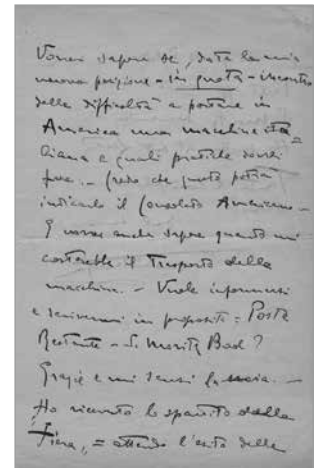 Vorrei sapere se, data la mia
nuova posizione - in quota - incontro
delle difficoltà a portare in
America una macchina ita=
liana e quali pratiche dovrei
fare. - Credo che questo potrà
indicarlo il Consolato Americano -
E vorrei anche sapere quanto mi
costerebbe il Trasporto della
macchina. - Vuole informarsi
e scrivermi in proposito = Poste
Restante - S. Moritz Bad?
Grazie e mi scusi la noia. -
Ho ricevuto lo spartito della
Fiera, = attendo l'esito delle